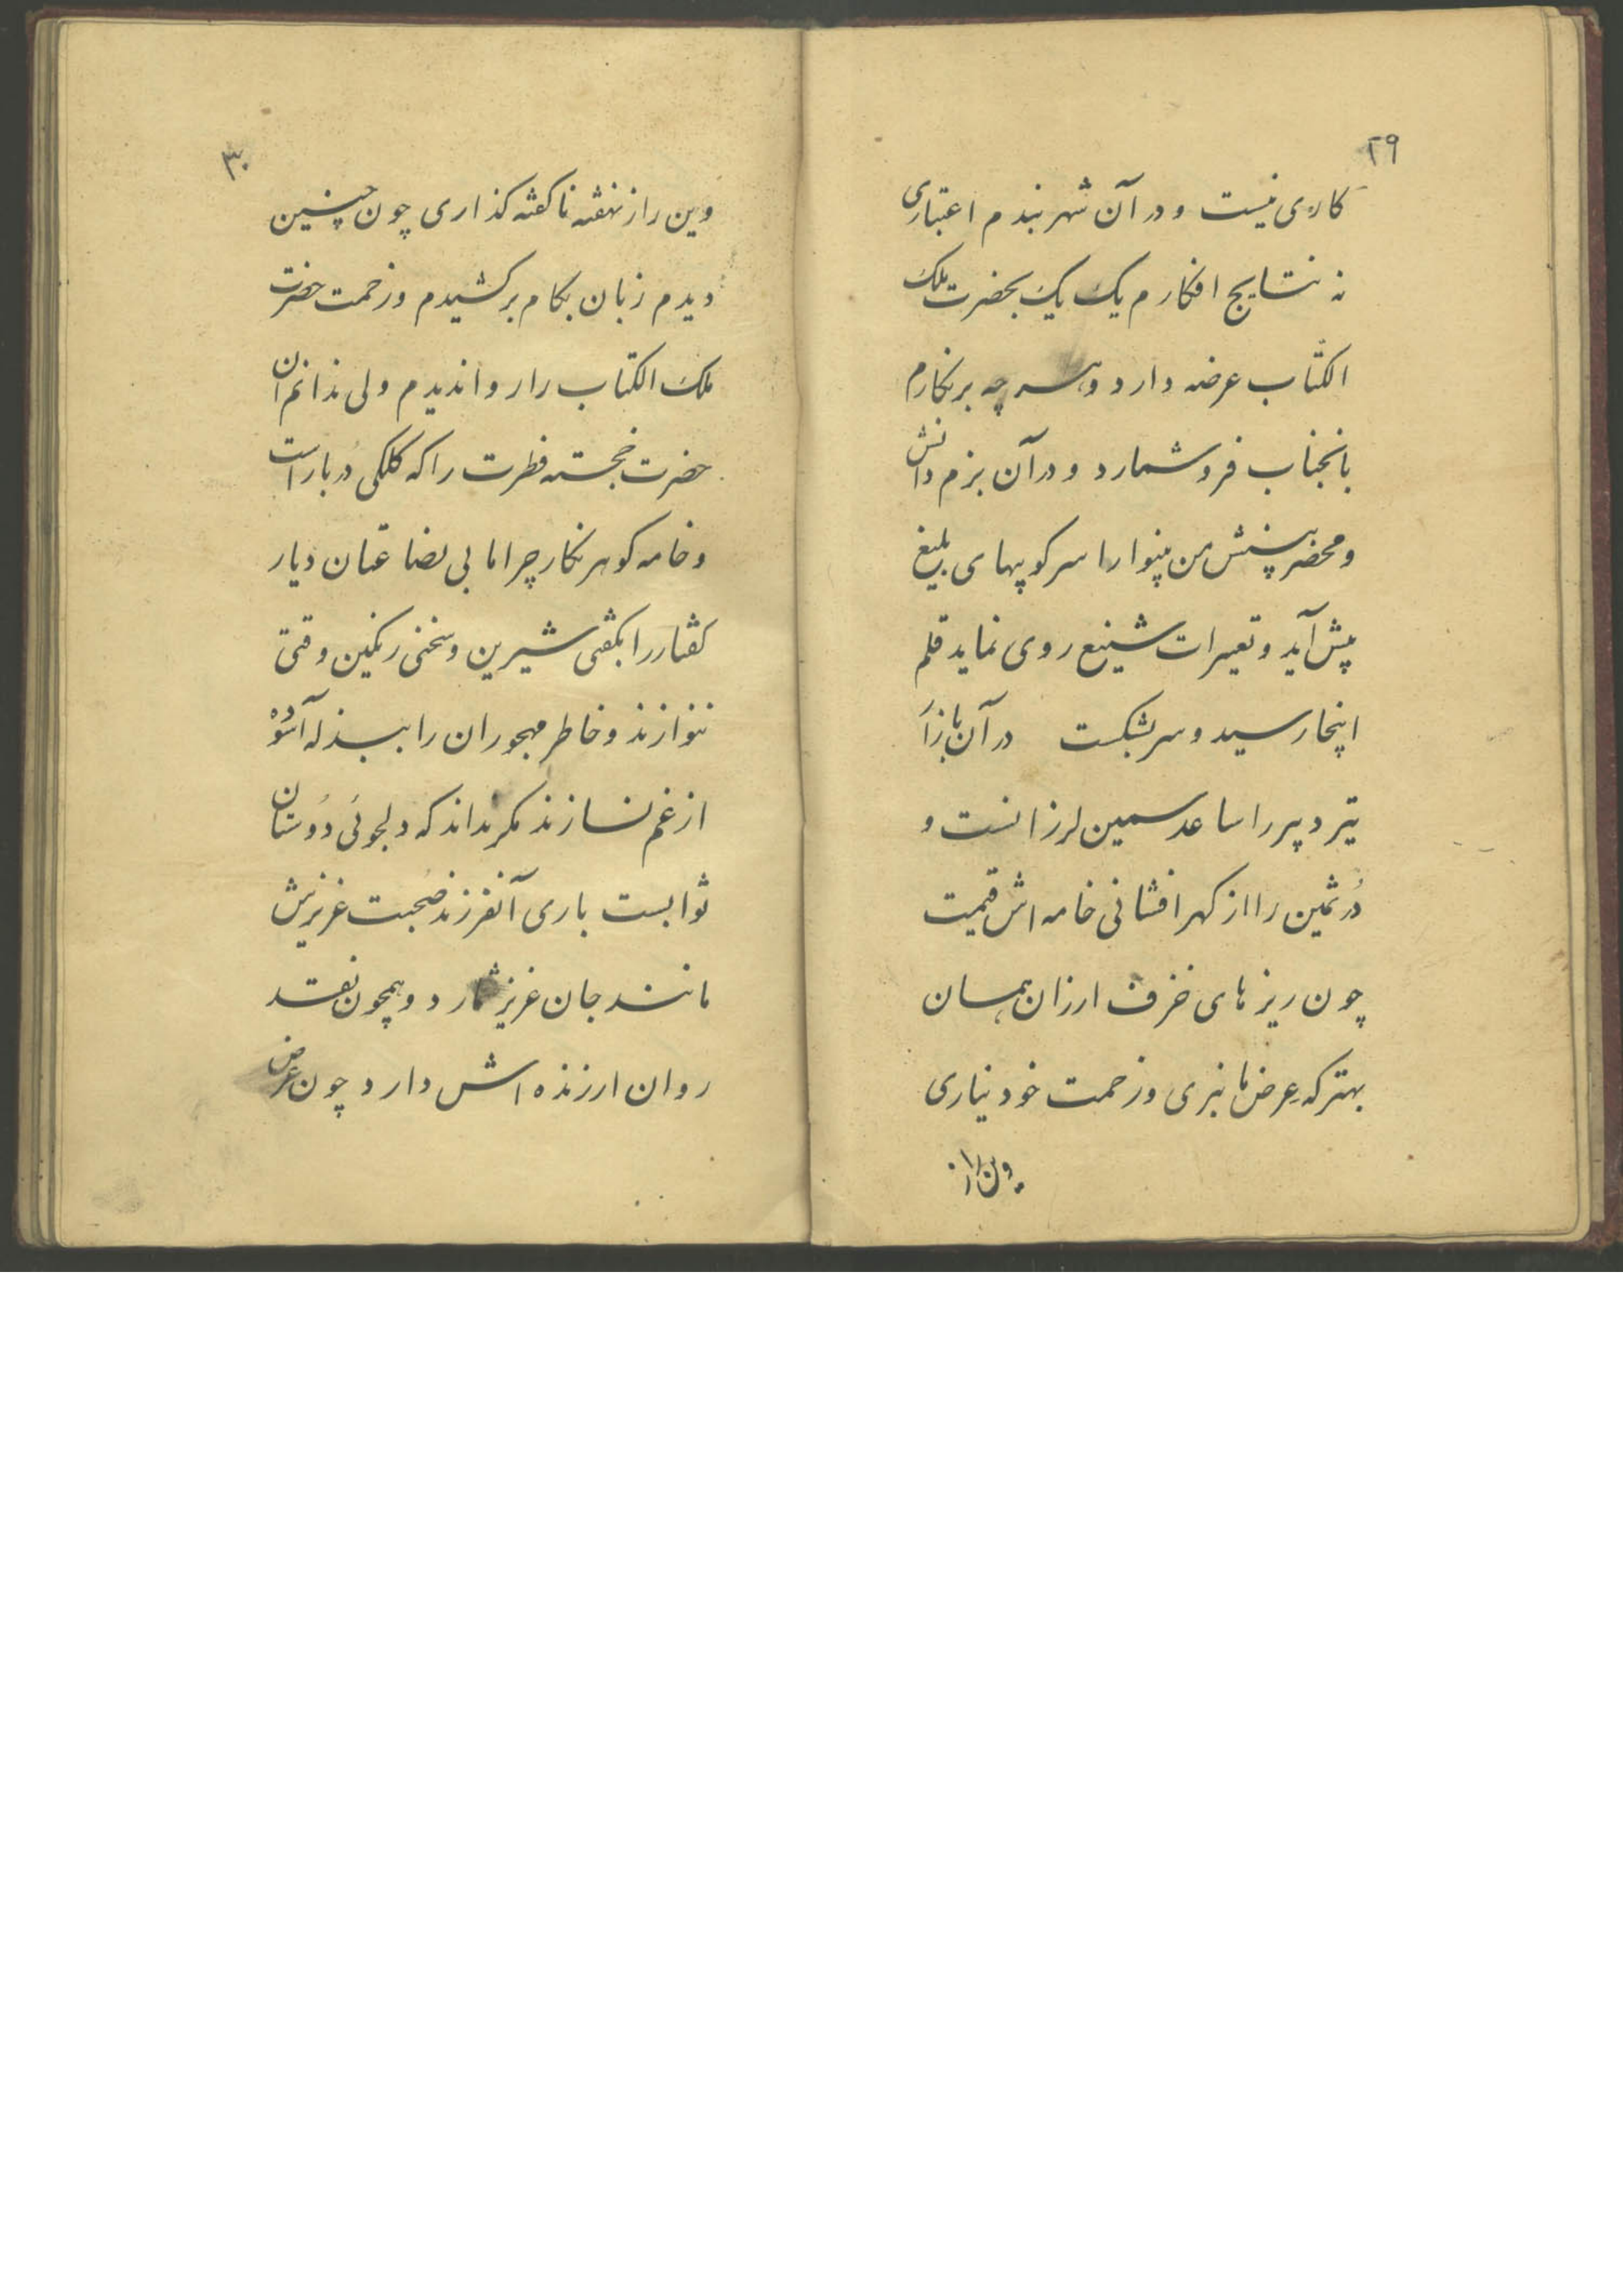 ۲۹
کاری نیست و در آن شهر بندم اعتباری
نه نتایج افکارم یک یک بحضرت ملک
الکتّاب عرضه دارد و هر چه برنکارم
بانجناب فروشمارد و در آن بزم دانش
و محضر بینش من بینوا را سرکوبیهای بلیغ
پیش آید و تعبیرات شنیع روی نماید قلم
اینجا رسید و سر بشکست در آن بازار
تیر دبیر را ساعد سیمین لرزانست و
دُر ثمین را از کهر افشانی خامه اش قیمت
چون ریزهای خزف ارزان همان
بهتر که عِرض ما نبری و زحمت خود نیاری
وین راز
۳۰
وین راز نهفته ناکفته کذاری چون چنین
دیدم زبان بکام برکشیدم و زحمت حضرت
ملک الکتاب را روا ندیدم ولی ندانم آن
حضرت خجسته فطرت را که کلکی دُربار است
و خامه کوهر نکار چرا ما بی بضاعتان دیار
کفتار را بکفتی شیرین و سخنی رنکین وقتی
ننوازند و خاطر مهجوران را ببذله آسوده
از غم نسازند مکر نداند که دلجوئی دوستان
ثوابست باری آنفرزند صُحبت عزیزیش
مانند جان عزیز شمارد و همچون نقد
روان ارزنده اش دارد چون عرض